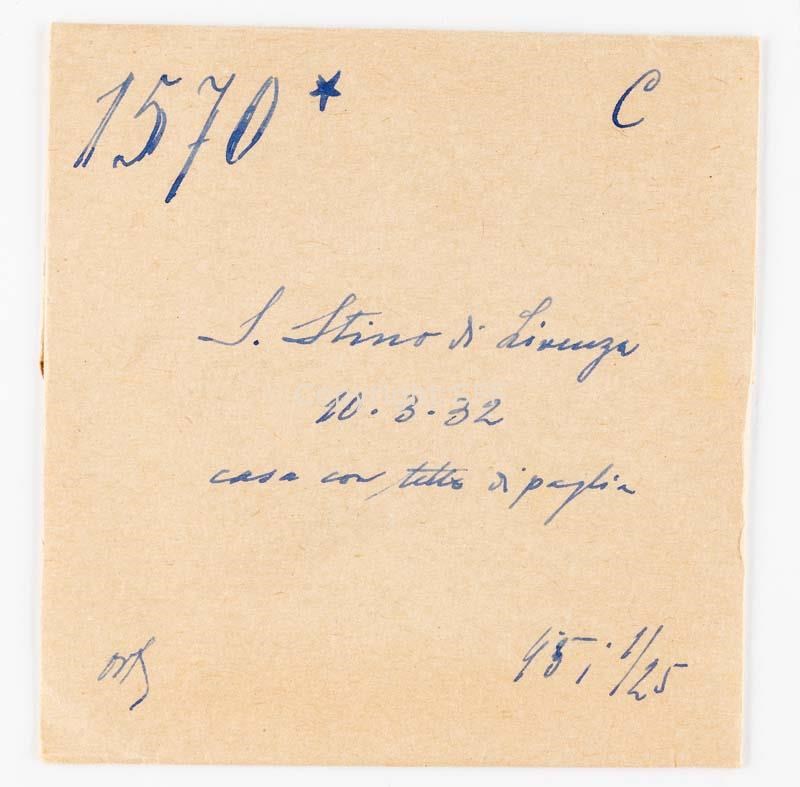 1570 * C
S. Stino di Livenza
10.3.32
casa con tetto di paglia
ort
1/25